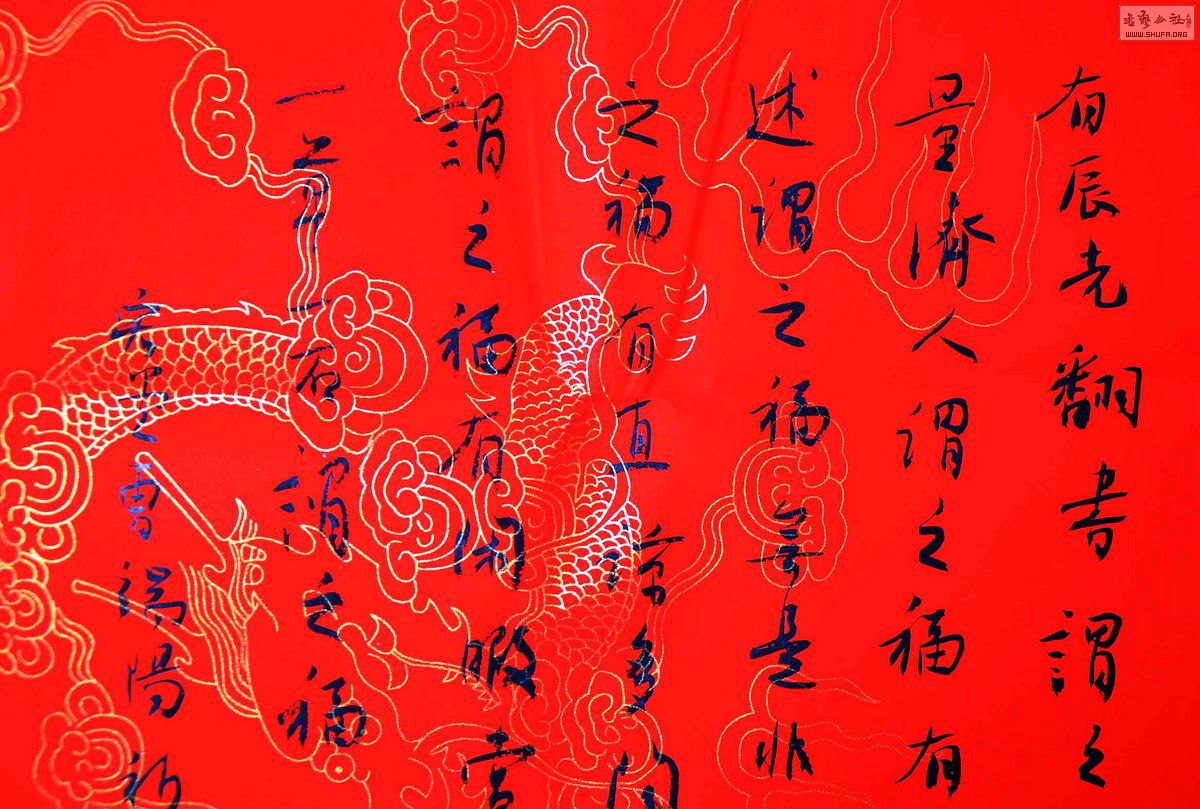 有辰光翻書謂之
量濟人謂之福有
述謂之福無是非
之福有直諒多聞
謂之福有閑暇
一一石謂之福
曹端陽
書藝公社
WWW.SHUFA.ORG